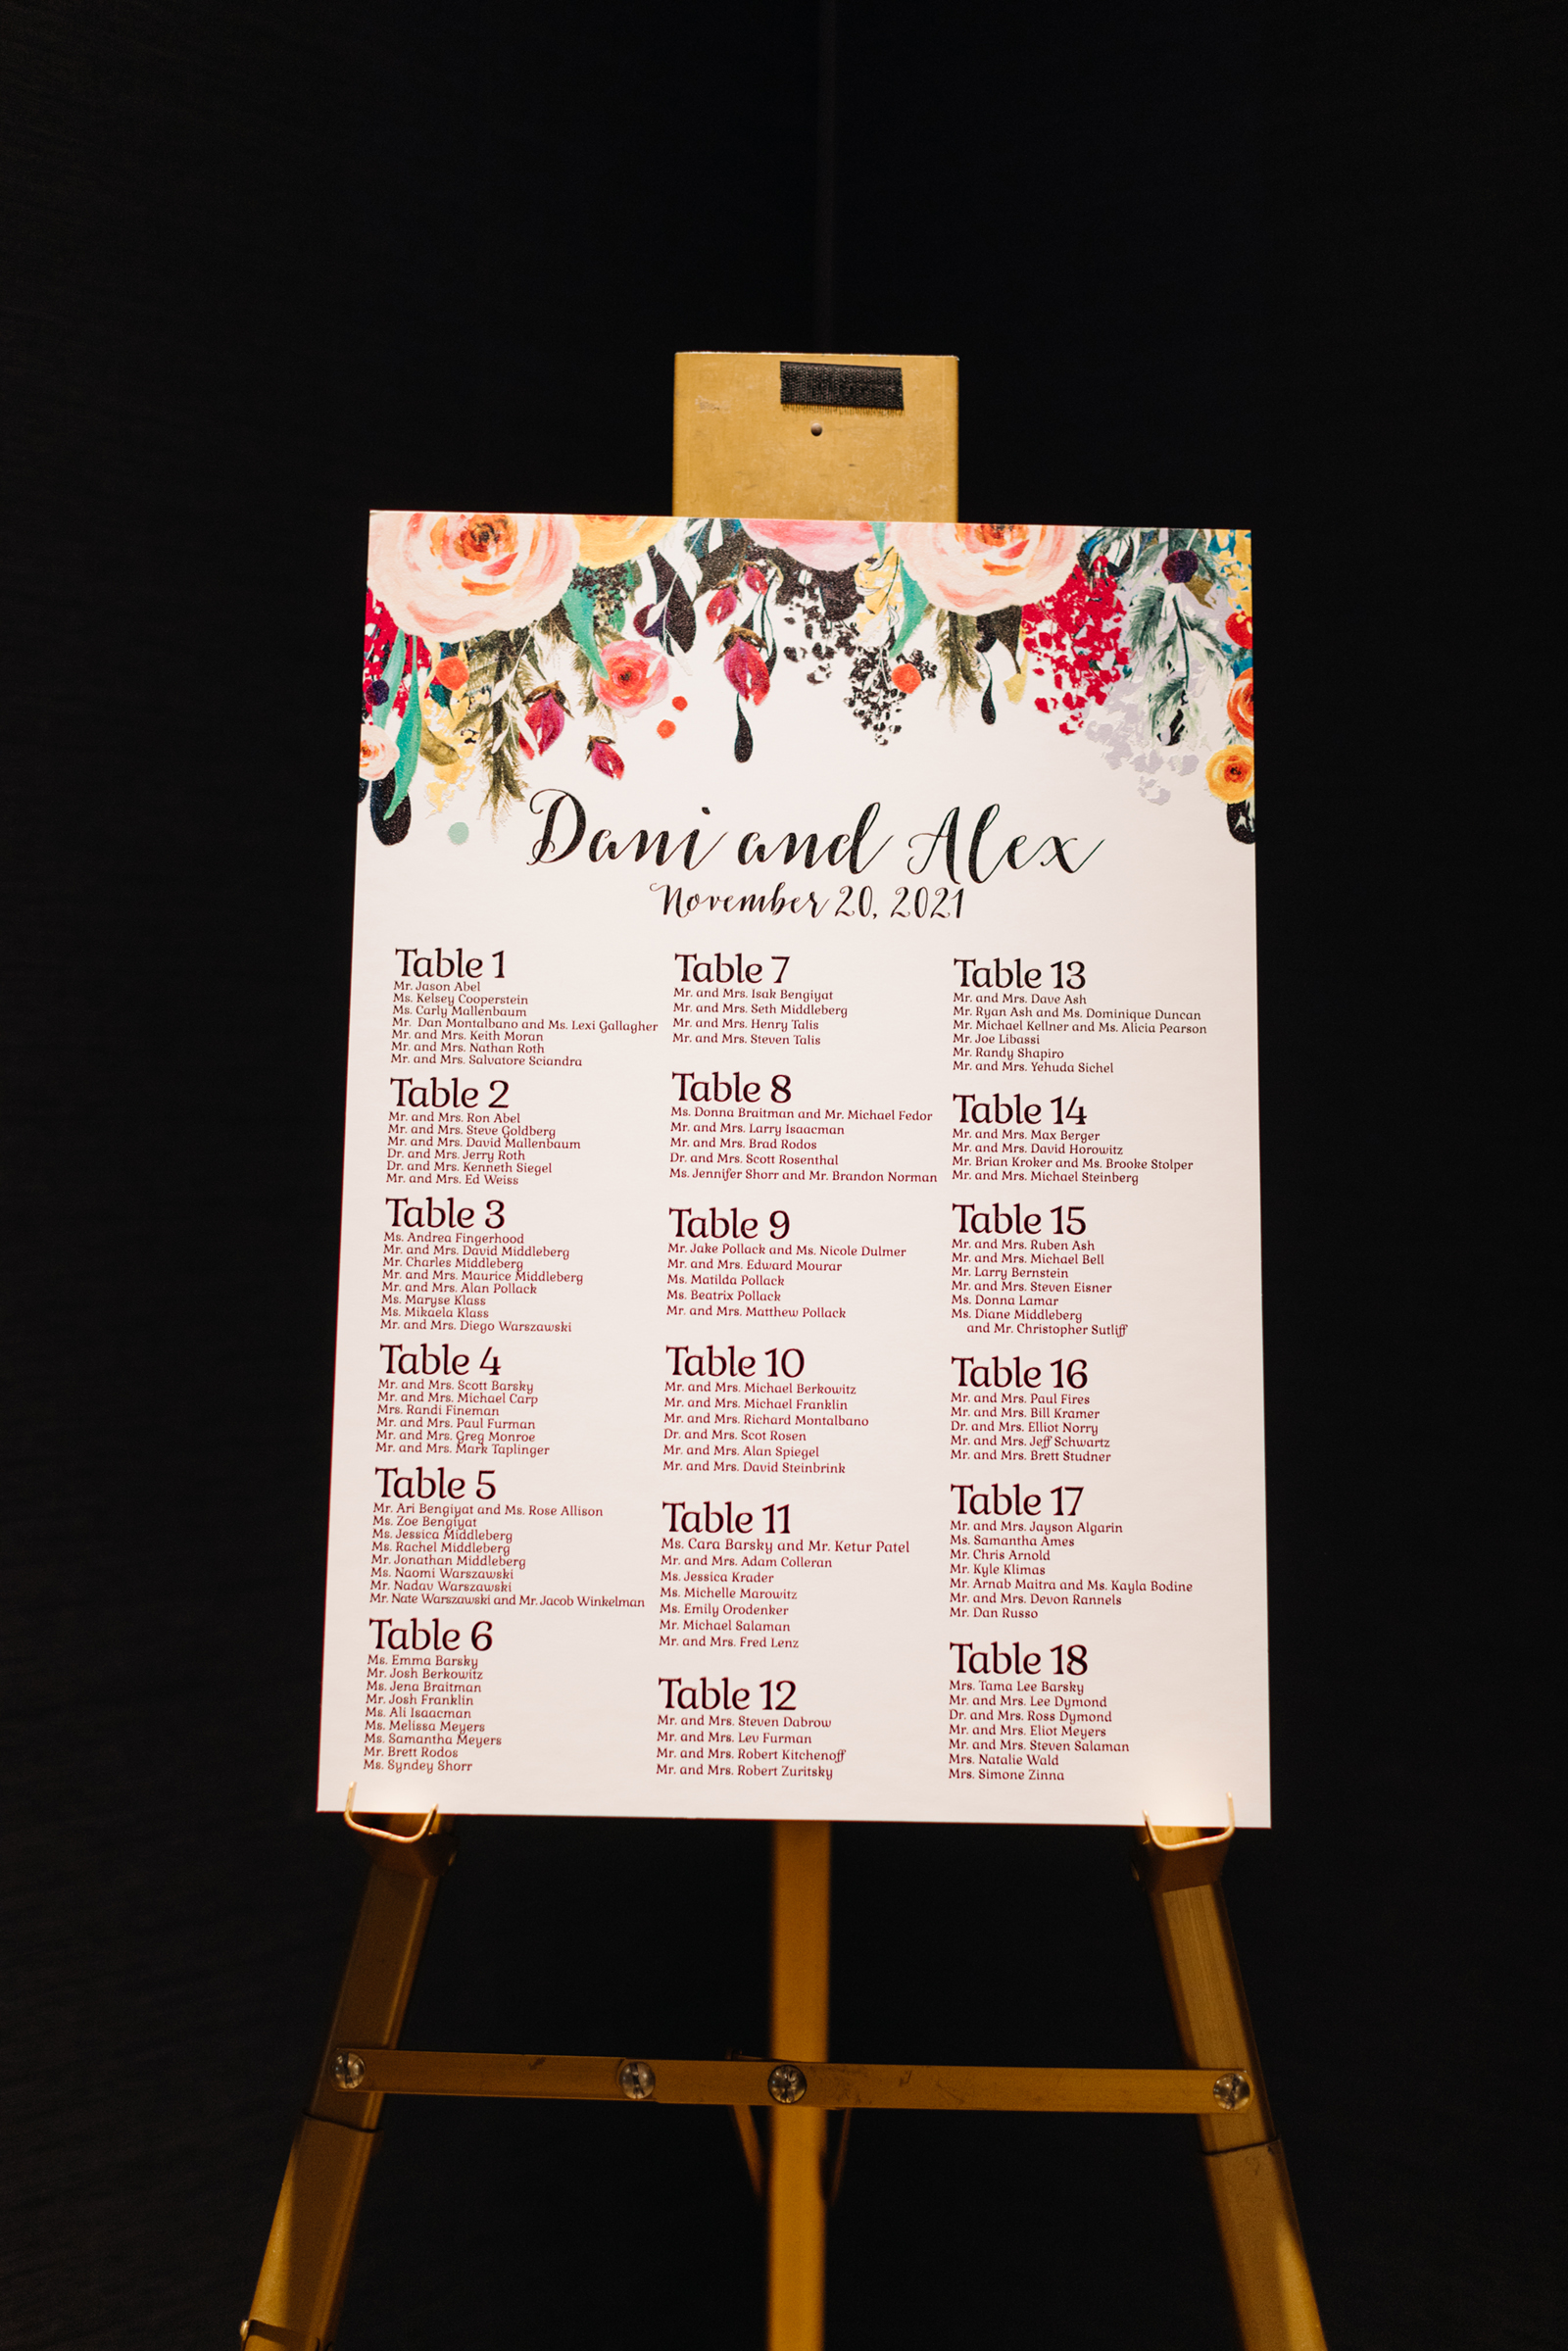 Dani and Alex
November 20, 2021
Table 1
Mr. Jason Abel
Ms. Kelsey Cooperstein
Ms. Carly Mallenbaum
Mr. Dan Montalbano and Ms. Lexi Gallagher
Mr. and Mrs. Keith Moran
Mr. and Mrs. Nathan Roth
Mr. and Mrs. Salvatore Sciandra
Table 2
Mr. and Mrs. Ron Abel
Mr. and Mrs. Steve Goldberg
Mr. and Mrs. David Mallenbaum
Dr. and Mrs. Jerry Roth
Dr. and Mrs. Kenneth Siegel
Mr. and Mrs. Ed Weiss
Table 3
Ms. Andrea Fingerhood
Mr. and Mrs. David Middleberg
Mr. Charles Middleberg
Mr. and Mrs. Maurice Middleberg
Mr. and Mrs. Alan Pollack
Ms. Maryse Klass
Ms. Mikaela Klass
Mr. and Mrs. Diego Warszawski
Table 4
Mr. and Mrs. Scott Barsky
Mr. and Mrs. Michael Carp
Mrs. Randi Fineman
Mr. and Mrs. Paul Furman
Mr. and Mrs. Greg Monroe
Mr. and Mrs. Mark Taplinger
Table 5
Mr. Ari Bengiyat and Ms. Rose Allison
Ms. Zoe Bengiyat
Ms. Jessica Middleberg
Ms. Rachel Middleberg
Mr. Jonathan Middleberg
Ms. Naomi Warszawski
Mr. Nadav Warszawski
Mr. Nate Warszawski and Mr. Jacob Winkelman
Table 6
Ms. Emma Barsky
Mr. Josh Berkowitz
Ms. Jena Braitman
Mr. Josh Franklin
Ms. Ali Isaacman
Ms. Melissa Meyers
Ms. Samantha Meyers
Mr. Brett Rodos
Ms. Syndey Shorr
Table 7
Mr. and Mrs. Isak Bengiyat
Mr. and Mrs. Seth Middleberg
Mr. and Mrs. Henry Talis
Mr. and Mrs. Steven Talis
Table 8
Ms. Donna Braitman and Mr. Michael Fedor
Mr. and Mrs. Larry Isaacman
Mr. and Mrs. Brad Rodos
Dr. and Mrs. Scott Rosenthal
Ms. Jennifer Shorr and Mr. Brandon Norman
Table 9
Mr. Jake Pollack and Ms. Nicole Dulmer
Mr. and Mrs. Edward Mourar
Ms. Matilda Pollack
Ms. Beatrix Pollack
Mr. and Mrs. Matthew Pollack
Table 10
Mr. and Mrs. Michael Berkowitz
Mr. and Mrs. Michael Franklin
Mr. and Mrs. Richard Montalbano
Dr. and Mrs. Scot Rosen
Mr. and Mrs. Alan Spiegel
Mr. and Mrs. David Steinbrink
Table 11
Ms. Cara Barsky and Mr. Ketur Patel
Mr. and Mrs. Adam Colleran
Ms. Jessica Krader
Ms. Michelle Marowitz
Ms. Emily Orodenker
Mr. Michael Salaman
Mr. and Mrs. Fred Lenz
Table 12
Mr. and Mrs. Steven Dabrow
Mr. and Mrs. Lev Furman
Mr. and Mrs. Robert Kitchenoff
Mr. and Mrs. Robert Zuritsky
Table 13
Mr. and Mrs. Dave Ash
Mr. Ryan Ash and Ms. Dominique Duncan
Mr. Michael Kellner and Ms. Alicia Pearson
Mr. Joe Libassi
Mr. Randy Shapiro
Mr. and Mrs. Yehuda Sichel
Table 14
Mr. and Mrs. Max Berger
Mr. and Mrs. David Horowitz
Mr. Brian Kroker and Ms. Brooke Stolper
Mr. and Mrs. Michael Steinberg
Table 15
Mr. and Mrs. Ruben Ash
Mr. and Mrs. Michael Bell
Mr. Larry Bernstein
Mr. and Mrs. Steven Eisner
Ms. Donna Lamar
Ms. Diane Middleberg
and Mr. Christopher Sutliff
Table 16
Mr. and Mrs. Paul Fires
Mr. and Mrs. Bill Kramer
Dr. and Mrs. Elliot Norry
Mr. and Mrs. Jeff Schwartz
Mr. and Mrs. Brett Studner
Table 17
Mr. and Mrs. Jayson Algarin
Ms. Samantha Ames
Mr. Chris Arnold
Mr. Kyle Klimas
Mr. Arnab Maitra and Ms. Kayla Bodine
Mr. and Mrs. Devon Rannels
Mr. Dan Russo
Table 18
Mrs. Tama Lee Barsky
Mr. and Mrs. Lee Dymond
Dr. and Mrs. Ross Dymond
Mr. and Mrs. Eliot Meyers
Mr. and Mrs. Steven Salaman
Mrs. Natalie Wald
Mrs. Simone Zinna